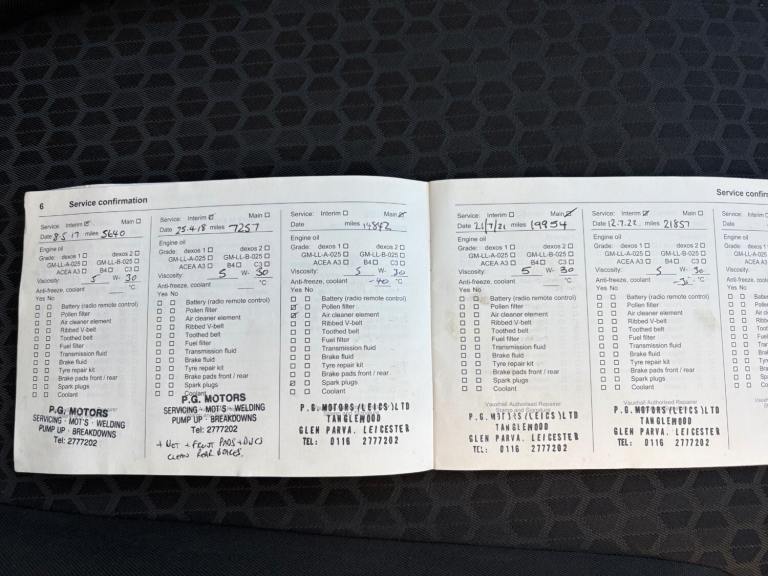 6 Service confirmation
Service: Interim Main
Date 8.5.17 miles 5640
Engine oil
Grade: dexos 1 dexos 2
GM-LL-A-025 GM-LL-B-025
ACEA A3 B4 C3
Viscosity: 5 W- 30
Anti-freeze, coolant °C
Yes No
Battery (radio remote control)
Pollen filter
Air cleaner element
Ribbed V-belt
Toothed belt
Fuel filter
Transmission fluid
Brake fluid
Tyre repair kit
Brake pads front / rear
Spark plugs
Coolant
P.G. MOTORS
SERVICING · MOT'S · WELDING
PUMP UP · BREAKDOWNS
Tel: 2777202
Service: Interim Main
Date 25.4.18 miles 7257
Engine oil
Grade: dexos 1 dexos 2
GM-LL-A-025 GM-LL-B-025
ACEA A3 B4 C3
Viscosity: 5 W- 30
Anti-freeze, coolant °C
Yes No
Battery (radio remote control)
Pollen filter
Air cleaner element
Ribbed V-belt
Toothed belt
Fuel filter
Transmission fluid
Brake fluid
Tyre repair kit
Brake pads front / rear
Spark plugs
Coolant
P.G. MOTORS
SERVICING · MOT'S · WELDING
PUMP UP · BREAKDOWNS
Tel: 2777202
+ FRONT PADS + DISCS
CLEAN REAR
Service: Interim Main
Date miles 14842
Engine oil
Grade: dexos 1 dexos 2
GM-LL-A-025 GM-LL-B-025
ACEA A3 B4 C3
Viscosity: 5 W- 30
Anti-freeze, coolant -40 °C
Yes No
Battery (radio remote control)
Pollen filter
Air cleaner element
Ribbed V-belt
Toothed belt
Fuel filter
Transmission fluid
Brake fluid
Tyre repair kit
Brake pads front / rear
Spark plugs
Coolant
P.G. MOTORS (LEICS) LTD
TANGLEWOOD
GLEN PARVA. LEICESTER
TEL: 0116 2777202
Service confirm
Service: Interim Main
Date 21/7/21 miles 19954
Engine oil
Grade: dexos 1 dexos 2
GM-LL-A-025 GM-LL-B-025
ACEA A3 B4 C3
Viscosity: 5 W- 30
Anti-freeze, coolant °C
Yes No
Battery (radio remote control)
Pollen filter
Air cleaner element
Ribbed V-belt
Toothed belt
Fuel filter
Transmission fluid
Brake fluid
Tyre repair kit
Brake pads front / rear
Spark plugs
Coolant
Vauxhall Authorised Repairer
Stamp and Signature
P.G. MOTORS (LEICS) LTD
TANGLEWOOD
GLEN PARVA. LEICESTER
TEL: 0116 2777202
Service: Interim Main
Date 12.7.22 miles 21857
Engine oil
Grade: dexos 1 dexos 2
GM-LL-A-025 GM-LL-B-025
ACEA A3 B4 C3
Viscosity: 5 W- 30
Anti-freeze, coolant °C
Yes No
Battery (radio remote control)
Pollen filter
Air cleaner element
Ribbed V-belt
Toothed belt
Fuel filter
Transmission fluid
Brake fluid
Tyre repair kit
Brake pads front / rear
Spark plugs
Coolant
Vauxhall Authorised Repairer
P.G. MOTORS (LEICS) LTD
TANGLEWOOD
GLEN PARVA. LEICESTER
TEL: 0116 2777202
Service: In
Date
Engine oil
Grade:
GM-L
Viscosity:
Anti-freeze,
Yes No